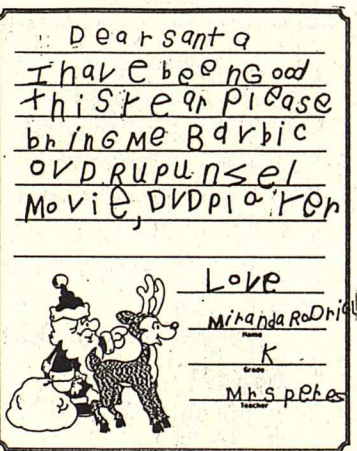 Dear santa
I have been Good
this year please
bring Me Barbie
DVD Rupunsel
Movie, DVD player
Love
Miranda RoDrigu
Name
K
Grade
Mrs peres
Teacher